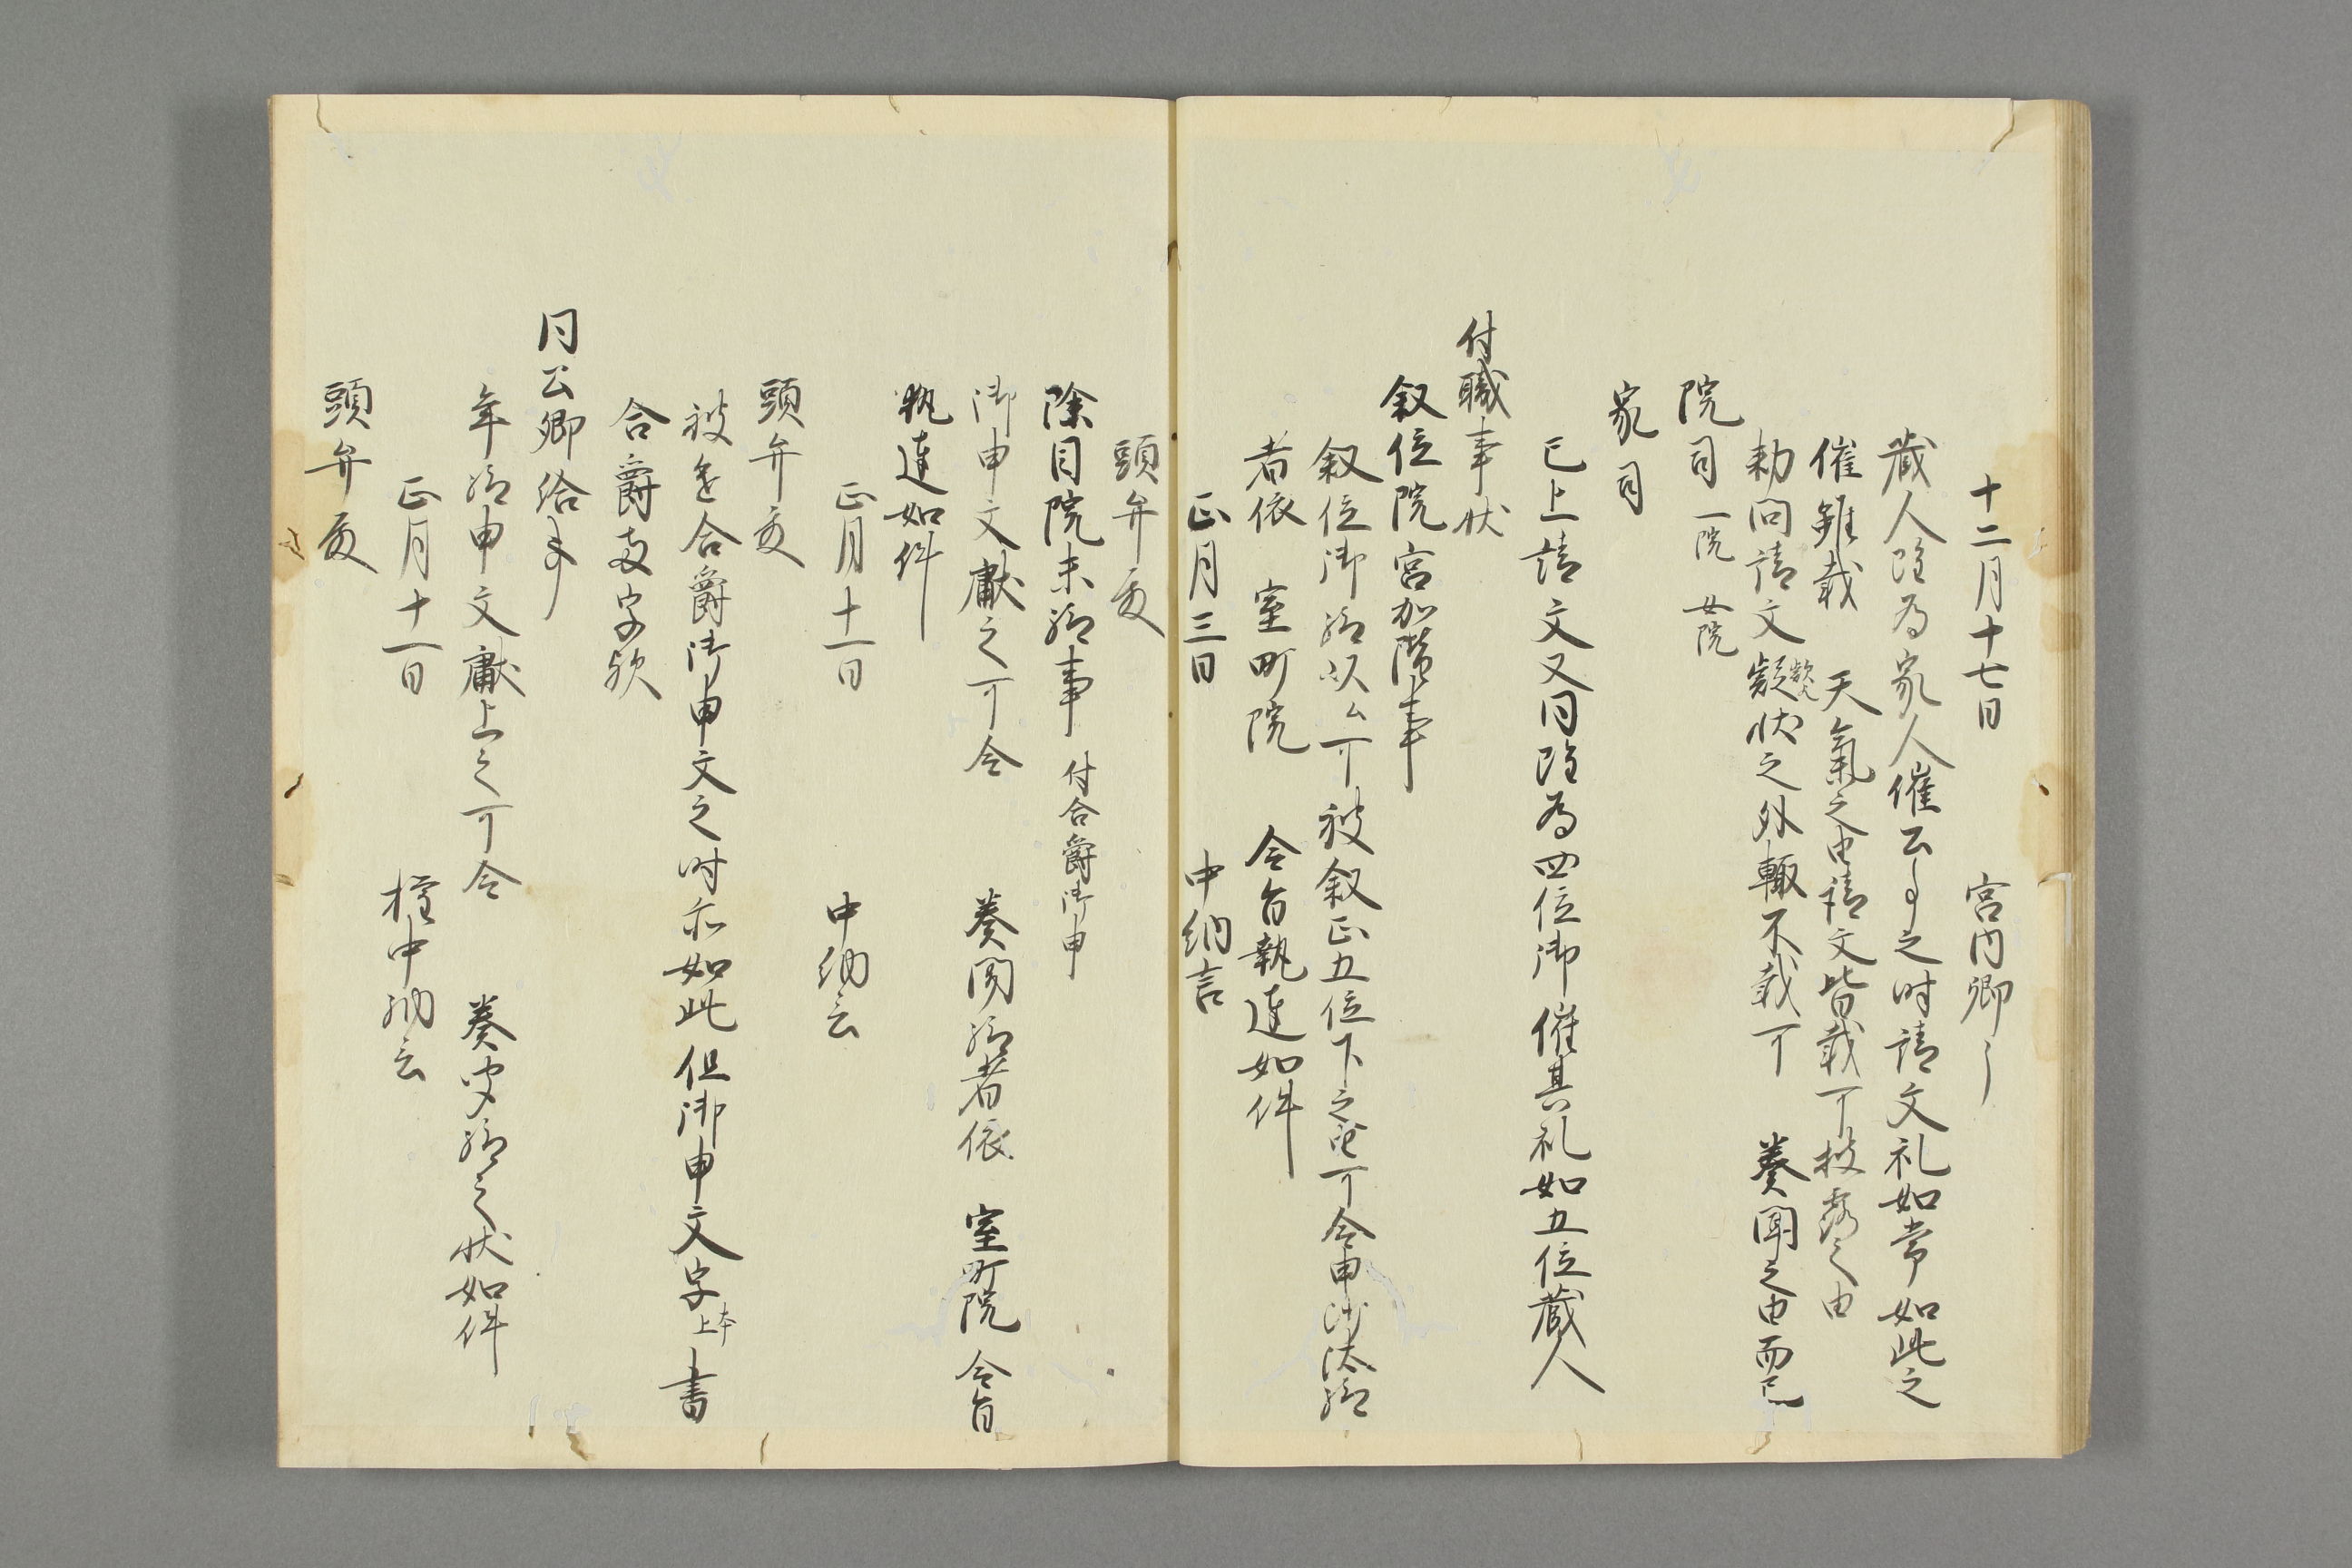 十二月十七日　宮内卿〻
蔵人雖為家人催公事之時請文礼如常如此之
催雖載　天氣之由請文皆載可披露之由
勅問請文疑状之外輙不載可　奏聞之由而已
院司 一院 女院
家司
已上請文又同雖為四位御催其礼如五位蔵人
付職事状
叙位院宮加階事
叙位御給以ム可被叙正五位下之由可令申沙汰給
者依　室町院　令旨執達如件
正月三日　中納言
頭弁殿
除目院未給事 付合爵御申
御申文献之可令　奏聞給者依　室町院　令旨
執達如件
正月十一日　中納言
頭弁殿
被進合爵御申文之時亦如此但御申文字上 書
合爵両字歟
同公卿給事
年給申文献上之可令　奏聞給之状如件
正月十一日　権中納言
頭弁殿